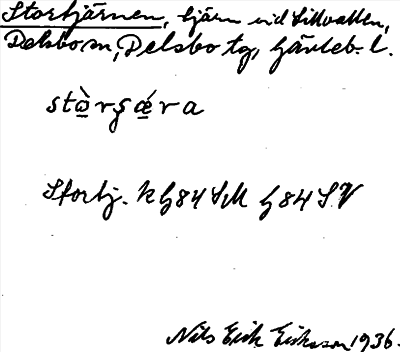 Stortjärnen, tjärn vid Lillvallen,
Delsbo sn, Delsbo tg, Gävleb. l.
stɷ̀rʂǽra
Stortj. k G84 SM G 84 S.V
Nils Erik Eriksson 1936.